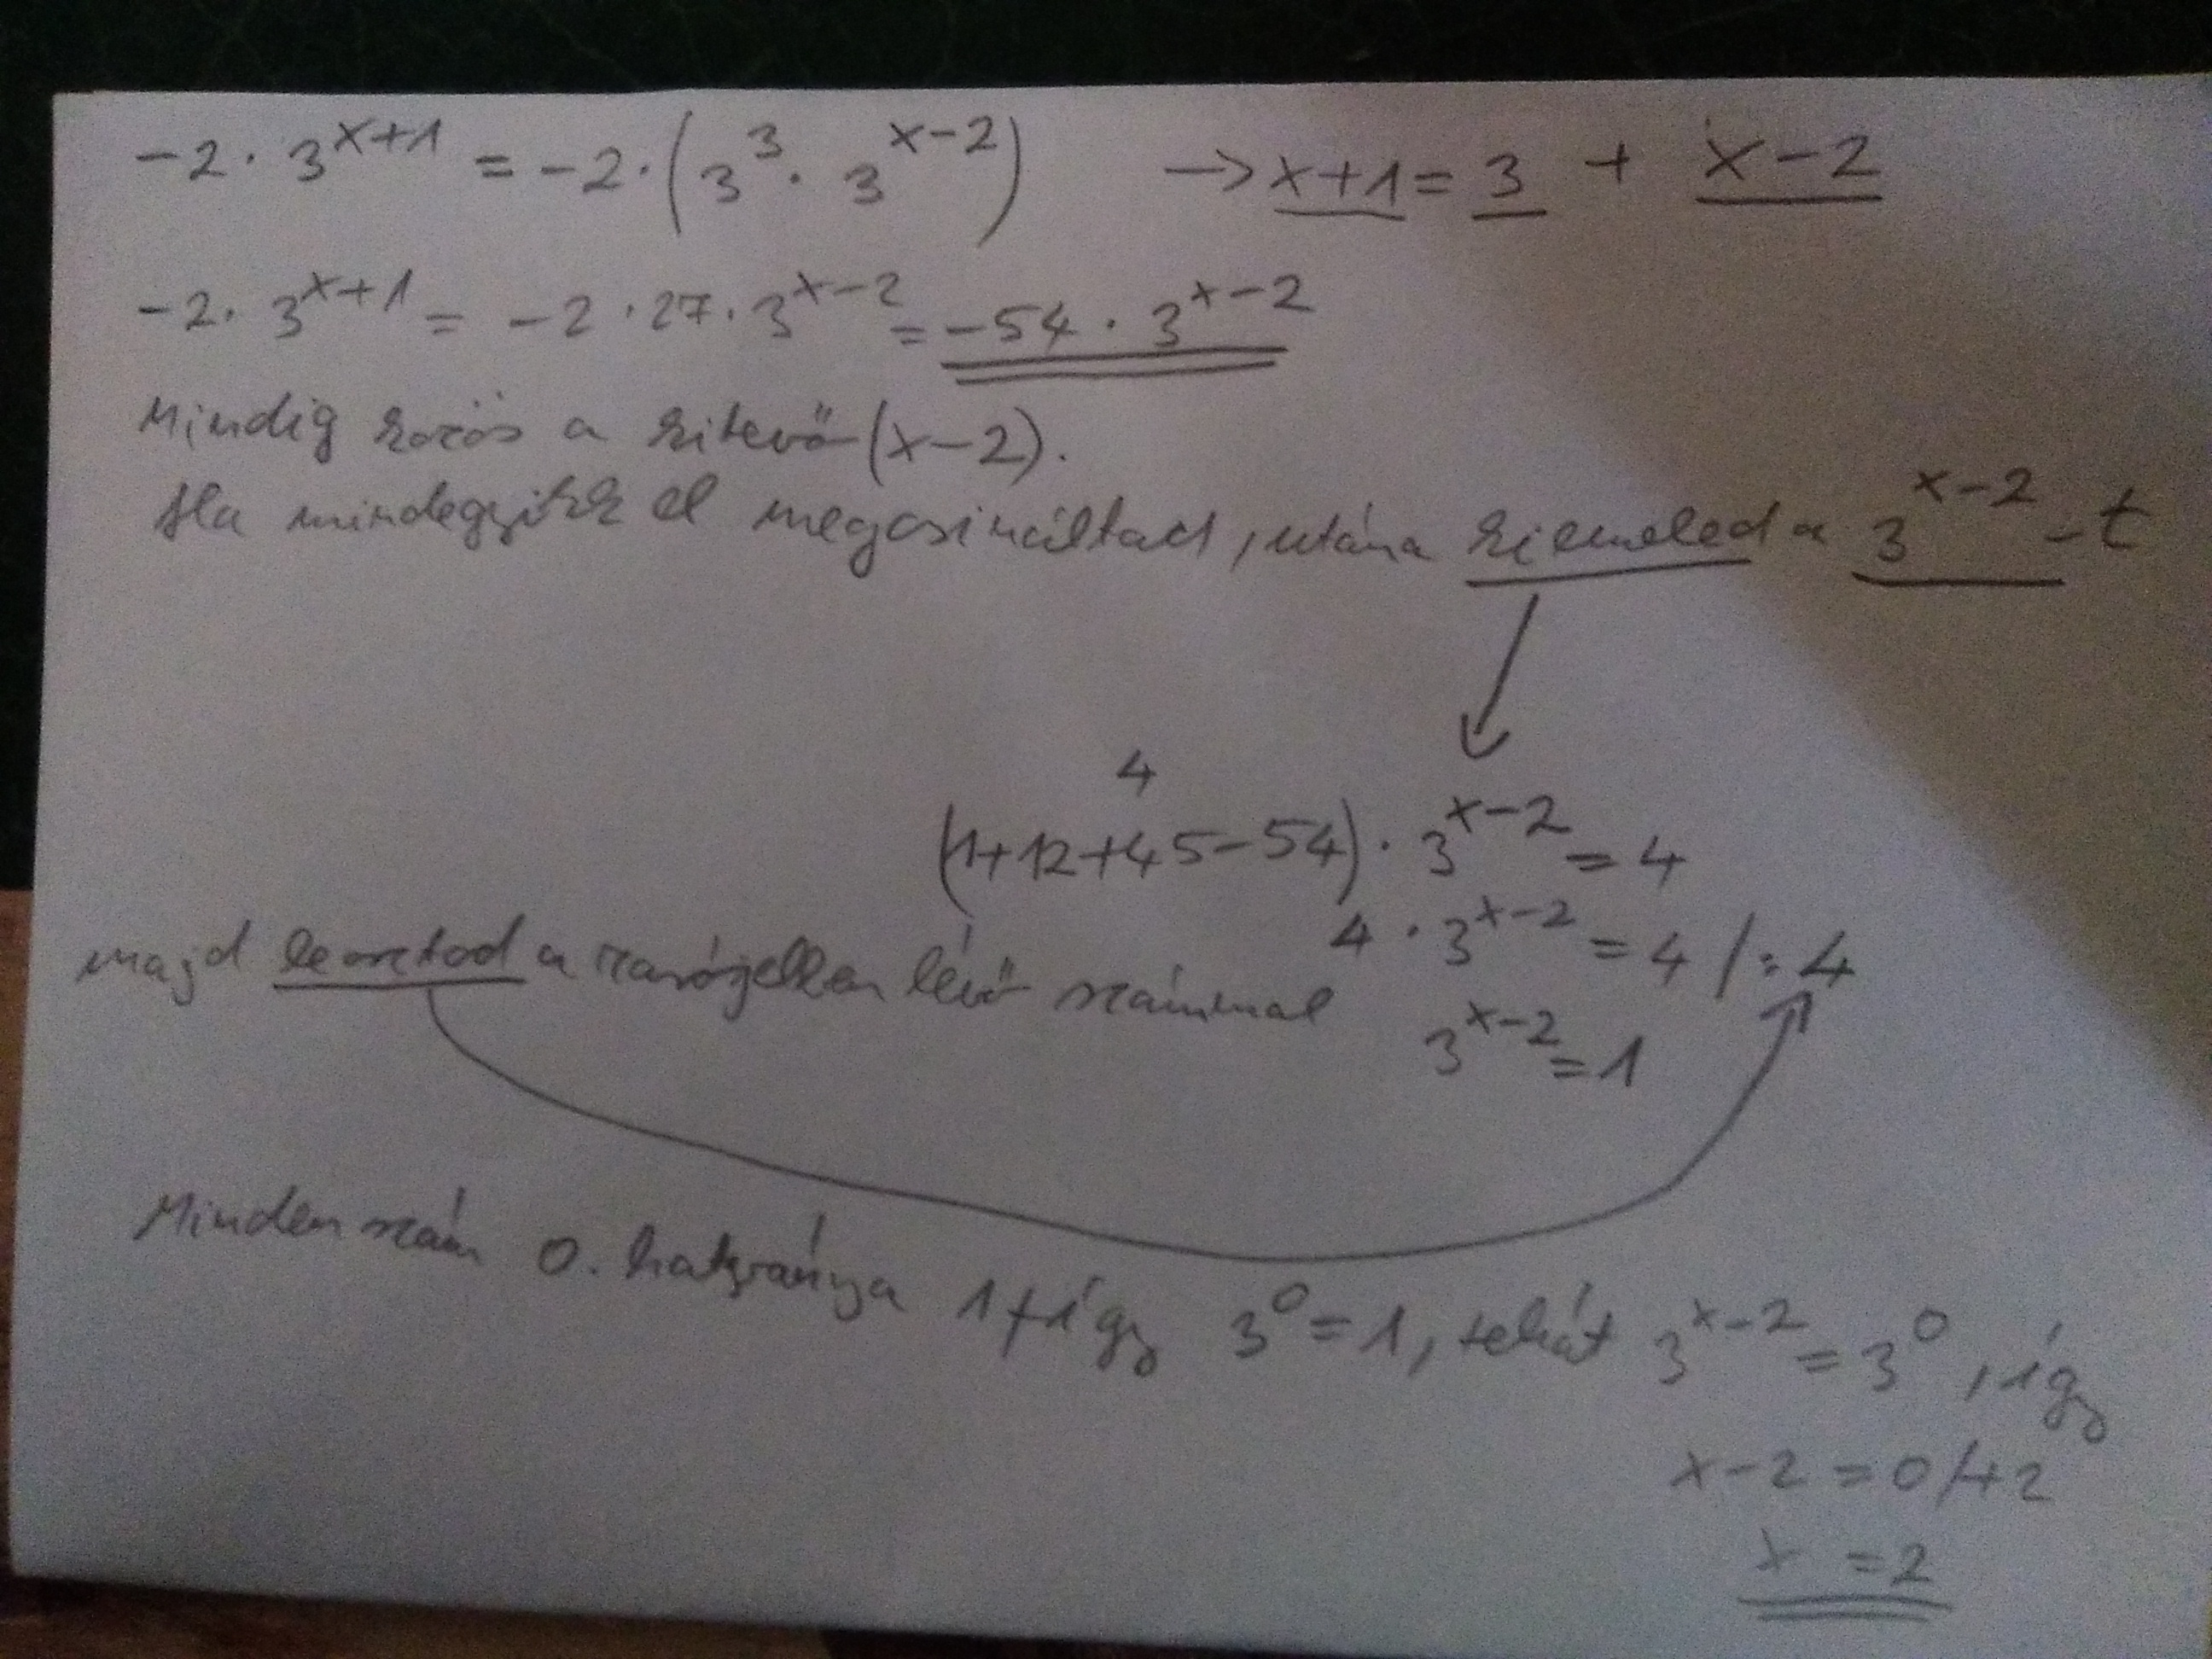 -2 · 3^{x+1} = -2 · (3^3 · 3^{x-2}) → x+1 = 3 + x-2
-2 · 3^{x+1} = -2 · 27 · 3^{x-2} = -54 · 3^{x-2}
Mindig közös a kitevő (x-2).
Ha mindegyikkel megcsináltad, utána kiemeled a 3^{x-2}-t
4
(1+12+45-54) · 3^{x-2} = 4
4 · 3^{x-2} = 4 /:4
majd leosztod a zárójelben lévő számmal
3^{x-2} = 1
Minden szám 0. hatványa 1, így 3^0 = 1, tehát 3^{x-2} = 3^0, így
x-2 = 0 /+2
x = 2